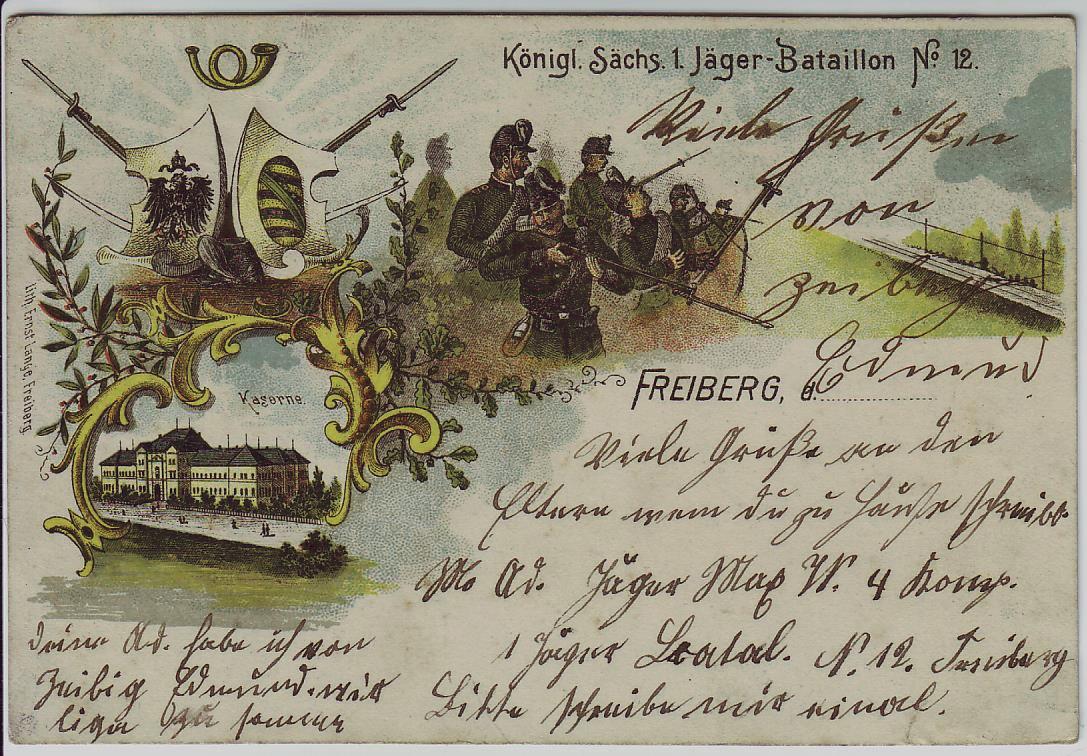 Königl. Sächs. 1. Jäger-Bataillon No 12.
Viele Grüßen
von
Zeibig
Edmund
Kaserne.
FREIBERG, d.
Lith. Ernst Lange, Freiberg
Viele Grüße an den
Eltern wem du zu Hauße schreibt
M. Ad. Jäger Max W. 4 Komp.
1 Jäger Batal. N. 12. Freiberg
Bitte schreibe mir einal.
deine Ad. habe ich von
Zeibig Edmund. wir
ligen zu samme